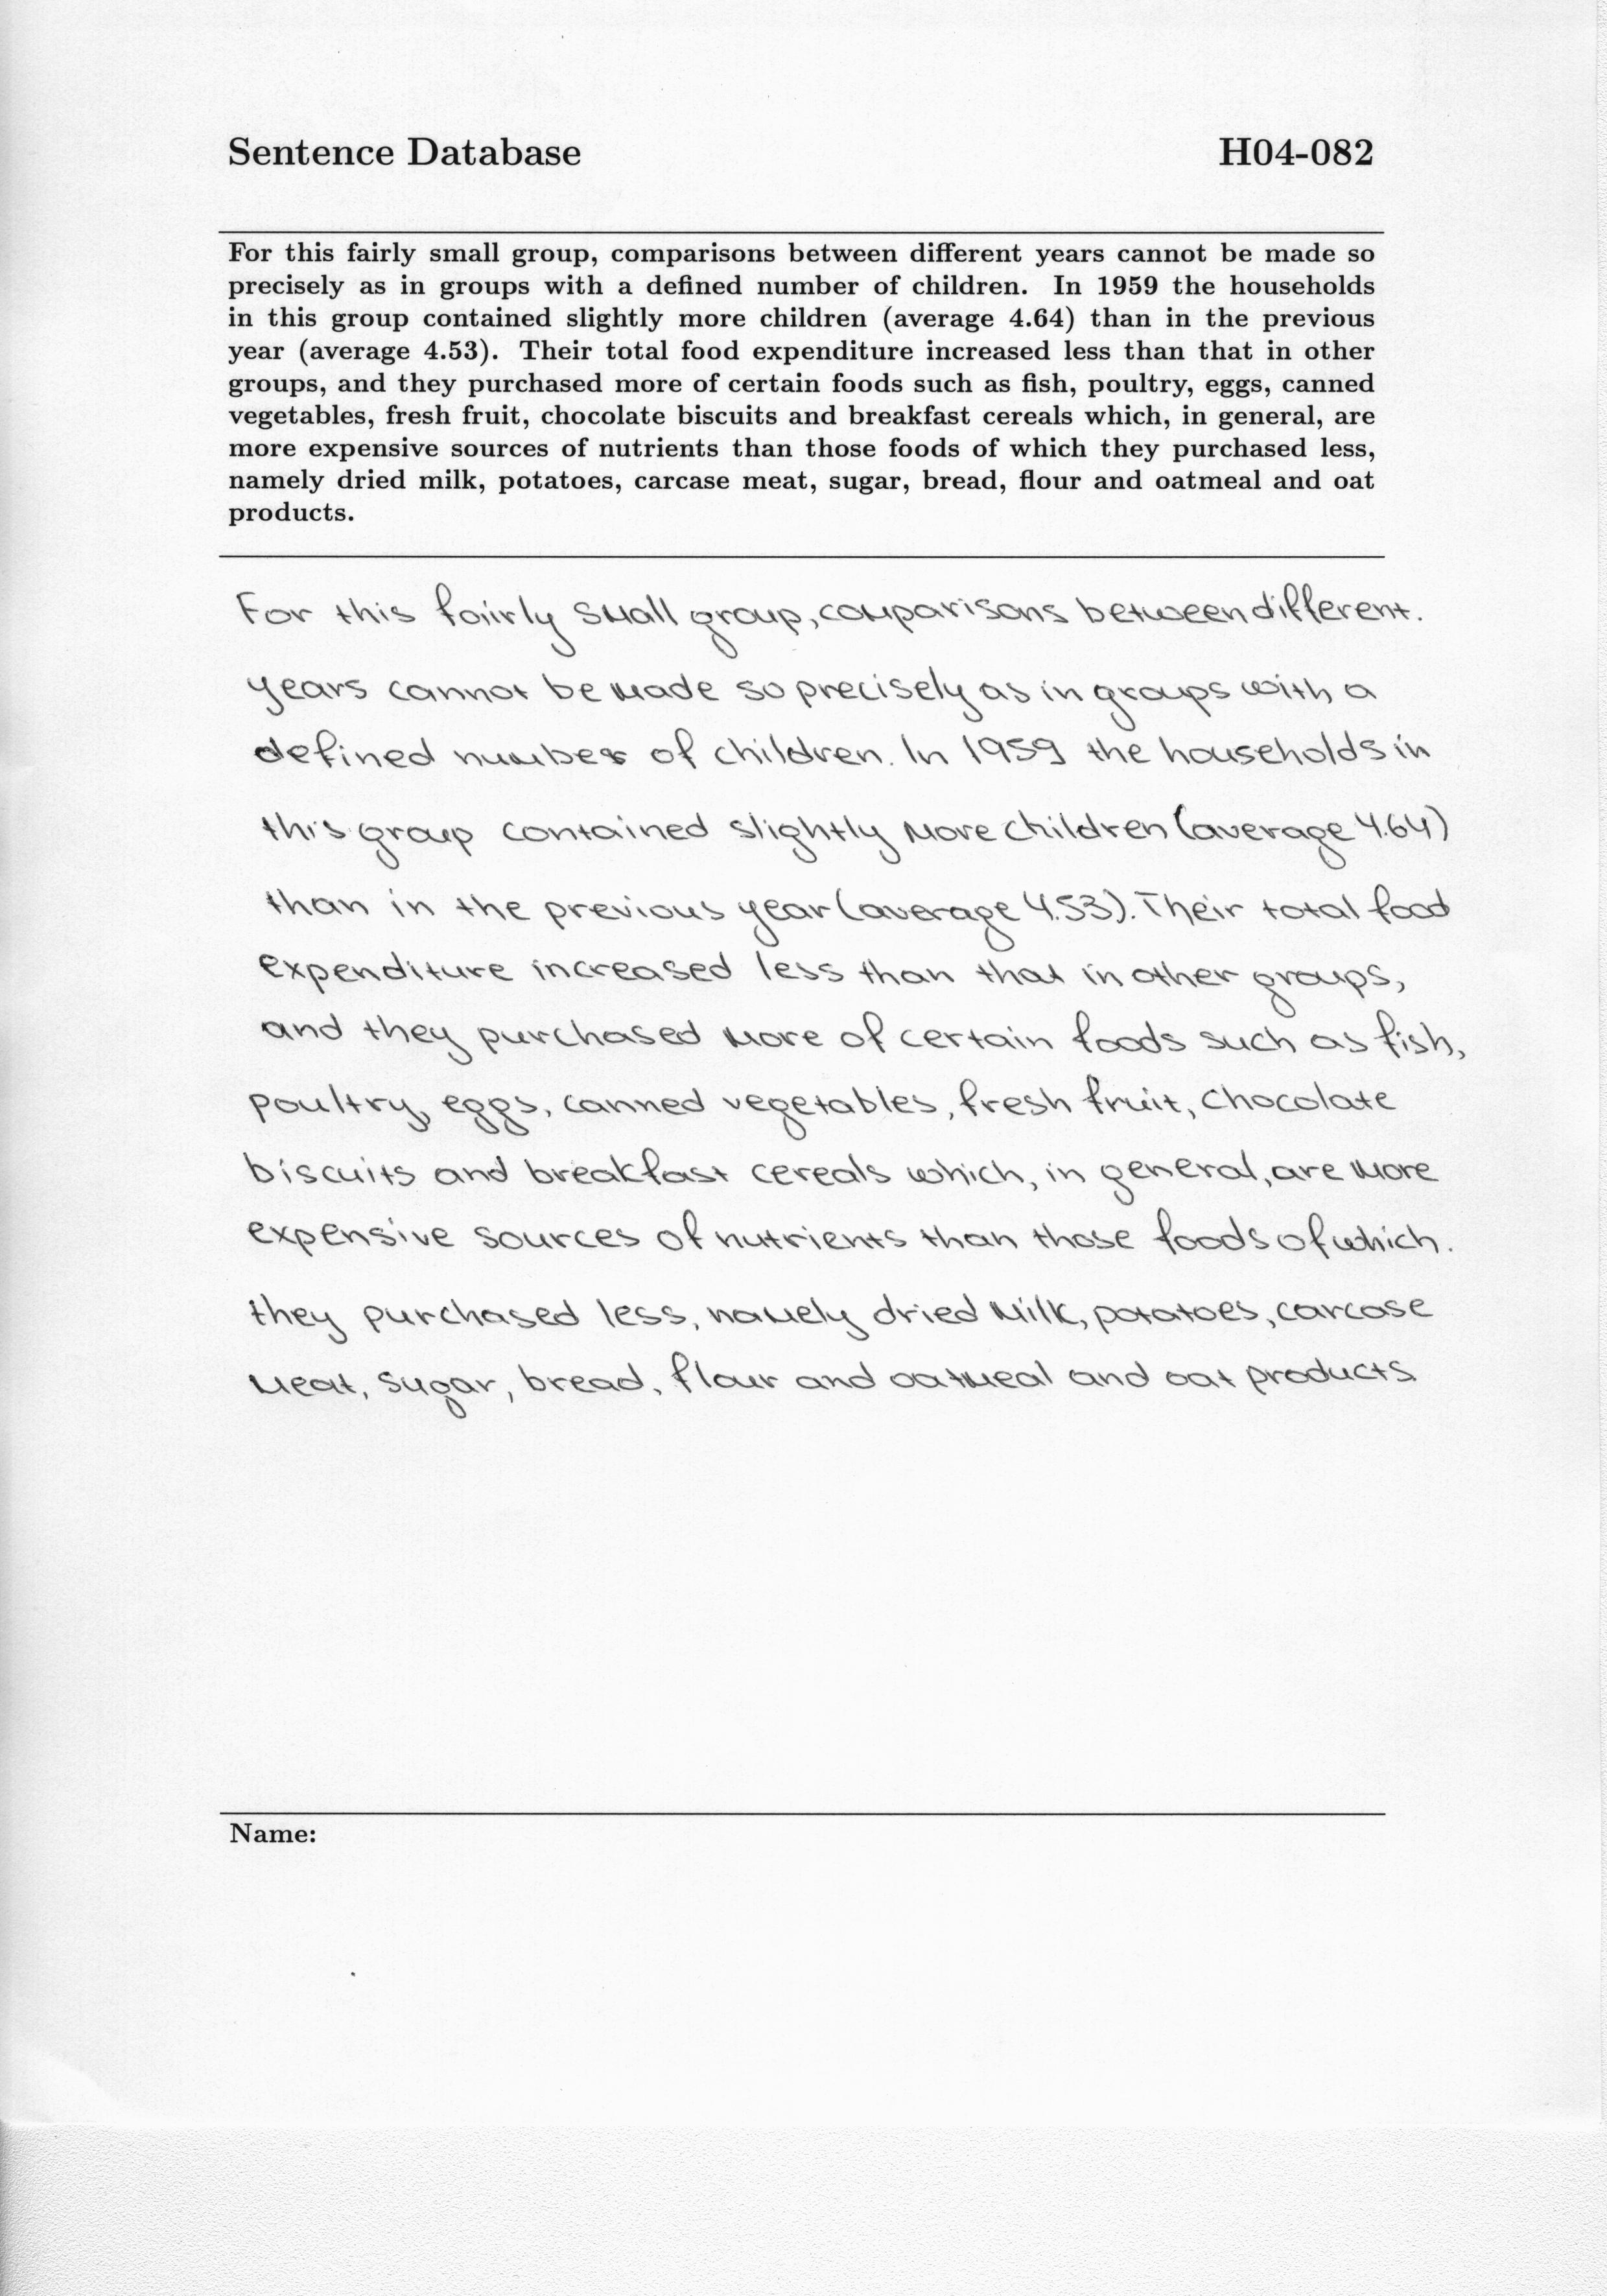 Sentence Database H04-082
For this fairly small group, comparisons between different years cannot be made so
precisely as in groups with a defined number of children. In 1959 the households
in this group contained slightly more children (average 4.64) than in the previous
year (average 4.53). Their total food expenditure increased less than that in other
groups, and they purchased more of certain foods such as fish, poultry, eggs, canned
vegetables, fresh fruit, chocolate biscuits and breakfast cereals which, in general, are
more expensive sources of nutrients than those foods of which they purchased less,
namely dried milk, potatoes, carcase meat, sugar, bread, flour and oatmeal and oat
products.
For this fairly small group, comparisons between different.
years cannot be made so precisely as in groups with a
defined number of children. In 1959 the households in
this group contained slightly more children (average 4.64)
than in the previous year (average 4.53). Their total food
expenditure increased less than that in other groups,
and they purchased more of certain foods such as fish,
poultry, eggs, canned vegetables, fresh fruit, chocolate
biscuits and breakfast cereals which, in general, are more
expensive sources of nutrients than those foods of which.
they purchased less, namely dried milk, potatoes, carcase
meat, sugar, bread, flour and oatmeal and oat products.
Name: